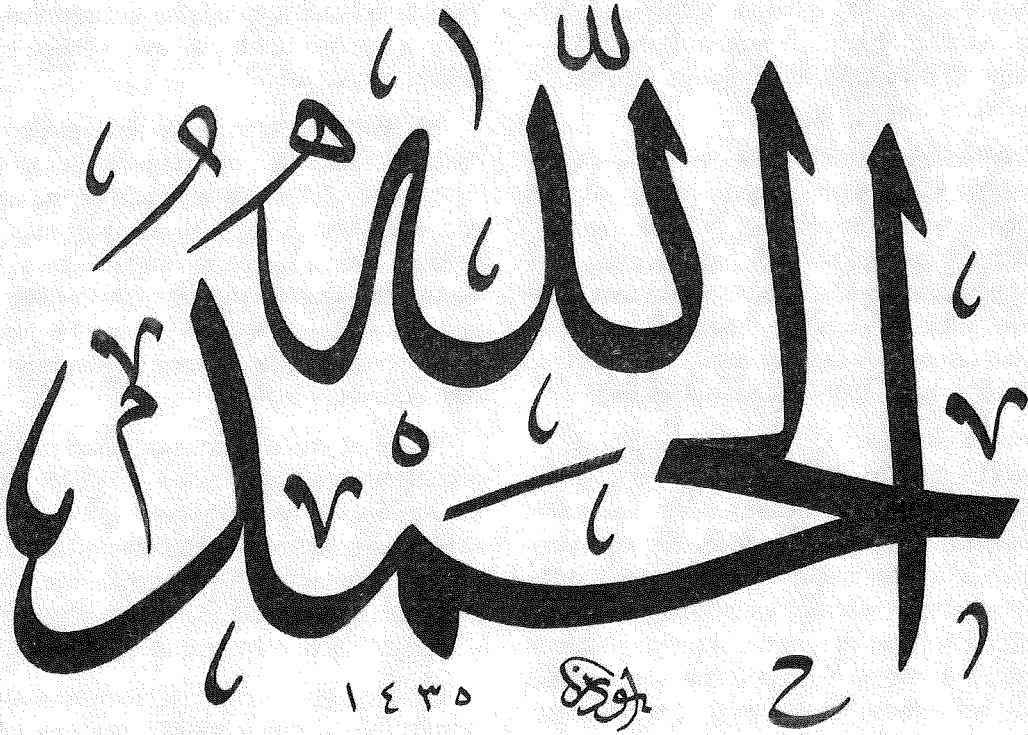 الحَمْدُ للّٰه
١٤٣٥